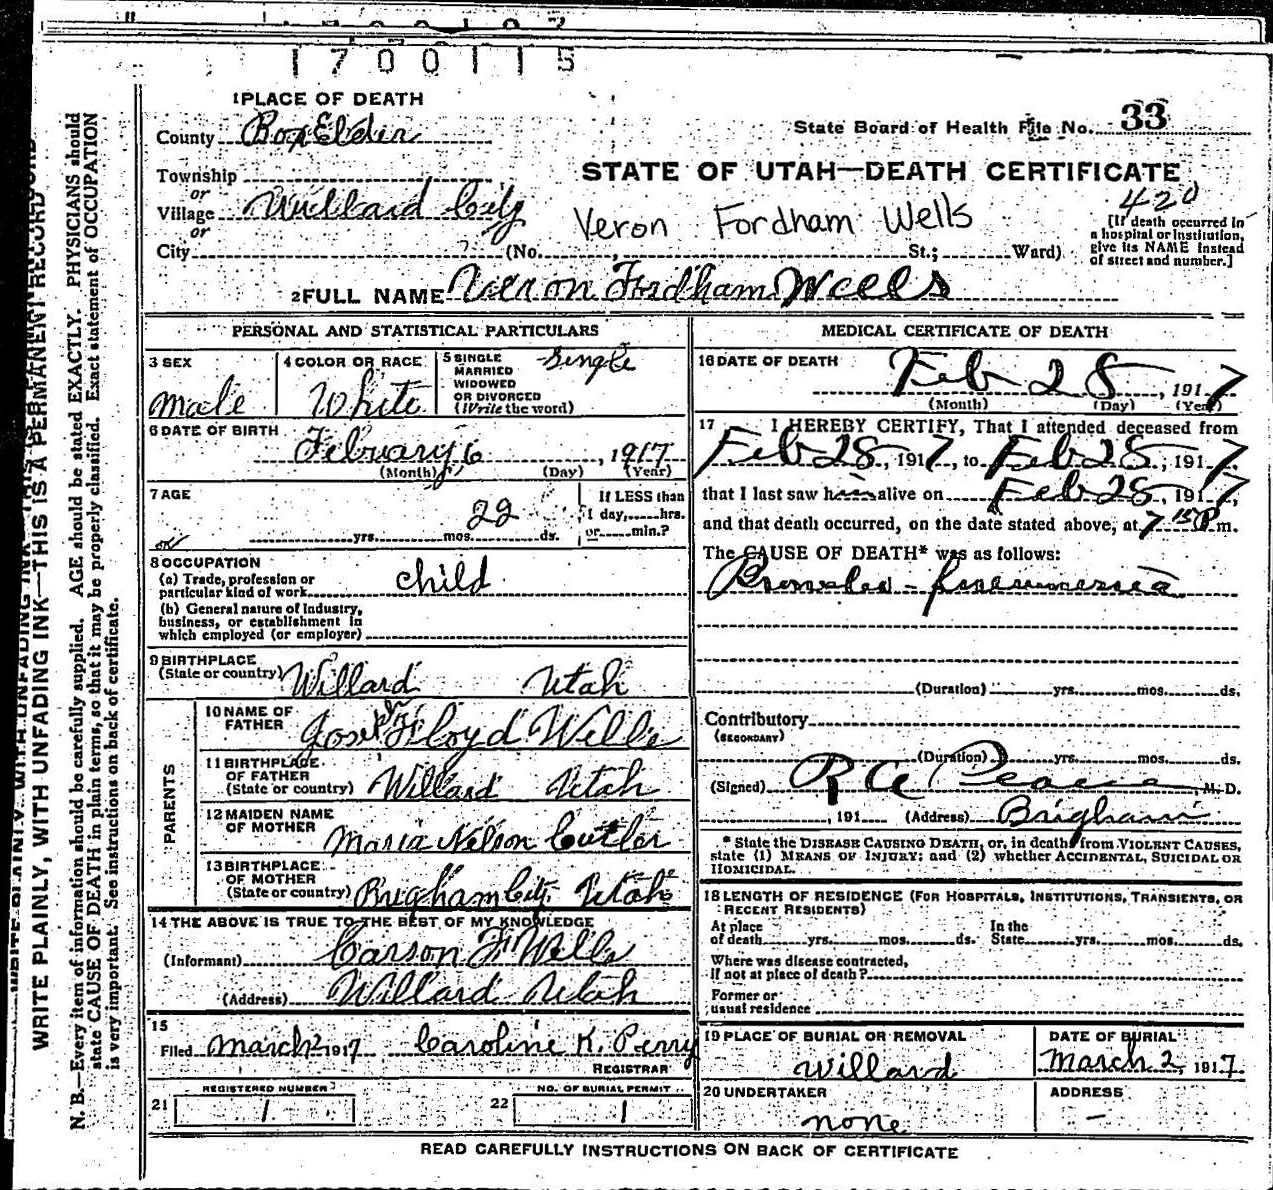 1700115
1 PLACE OF DEATH
County Box Elder
State Board of Health File No. 33
Township
or
Village Willard City
or
City (No. St.; Ward)
STATE OF UTAH—DEATH CERTIFICATE
420
Veron Fordham Wells
[If death occurred in
a hospital or institution,
give its NAME instead
of street and number.]
2 FULL NAME Veron Fordham Wells
PERSONAL AND STATISTICAL PARTICULARS
3 SEX
male
4 COLOR OR RACE
White
5 SINGLE
MARRIED
WIDOWED
OR DIVORCED
(Write the word)
single
6 DATE OF BIRTH
February 6, 1917
(Month) (Day) (Year)
7 AGE
22
yrs. mos. ds.
If LESS than
1 day, hrs.
or min.?
8 OCCUPATION
(a) Trade, profession or
particular kind of work child
(b) General nature of industry,
business, or establishment in
which employed (or employer)
9 BIRTHPLACE
(State or country) Willard Utah
PARENTS
10 NAME OF
FATHER Floyd Wells
11 BIRTHPLACE
OF FATHER
(State or country) Willard Utah
12 MAIDEN NAME
OF MOTHER Maria Nelson Cutler
13 BIRTHPLACE
OF MOTHER
(State or country) Brigham City Utah
14 THE ABOVE IS TRUE TO THE BEST OF MY KNOWLEDGE
(Informant) Carson F Wells
(Address) Willard Utah
15
Filed March 2 1917 Caroline K. Perry
REGISTRAR
REGISTERED NUMBER
21 1
NO. OF BURIAL PERMIT
22 1
MEDICAL CERTIFICATE OF DEATH
16 DATE OF DEATH
Feb 28, 1917
(Month) (Day) (Year)
17 I HEREBY CERTIFY, That I attended deceased from
Feb 28, 1917, to Feb 28, 1917,
that I last saw h alive on Feb 28, 1917,
and that death occurred, on the date stated above, at 7 15 P m.
The CAUSE OF DEATH* was as follows:
Broncho-pneumonia
(Duration) yrs. mos. ds.
Contributory
(SECONDARY)
(Duration) yrs. mos. ds.
(Signed) R A Pearse M. D.
, 191 (Address) Brigham
* State the DISEASE CAUSING DEATH, or, in death from VIOLENT CAUSES,
state (1) MEANS OF INJURY; and (2) whether ACCIDENTAL, SUICIDAL OR
HOMICIDAL.
18 LENGTH OF RESIDENCE (FOR HOSPITALS, INSTITUTIONS, TRANSIENTS, OR
RECENT RESIDENTS)
At place
of death yrs. mos. ds.
In the
State yrs. mos. ds.
Where was disease contracted,
If not at place of death?
Former or
usual residence
19 PLACE OF BURIAL OR REMOVAL
Willard
DATE OF BURIAL
March 2, 1917.
20 UNDERTAKER
none
ADDRESS
—
READ CAREFULLY INSTRUCTIONS ON BACK OF CERTIFICATE
WRITE PLAINLY, WITH UNFADING INK—THIS IS A PERMANENT RECORD
N. B.—Every item of information should be carefully supplied. AGE should be stated EXACTLY. PHYSICIANS should
state CAUSE OF DEATH in plain terms, so that it may be properly classified. Exact statement of OCCUPATION
is very important. See instructions on back of certificate.